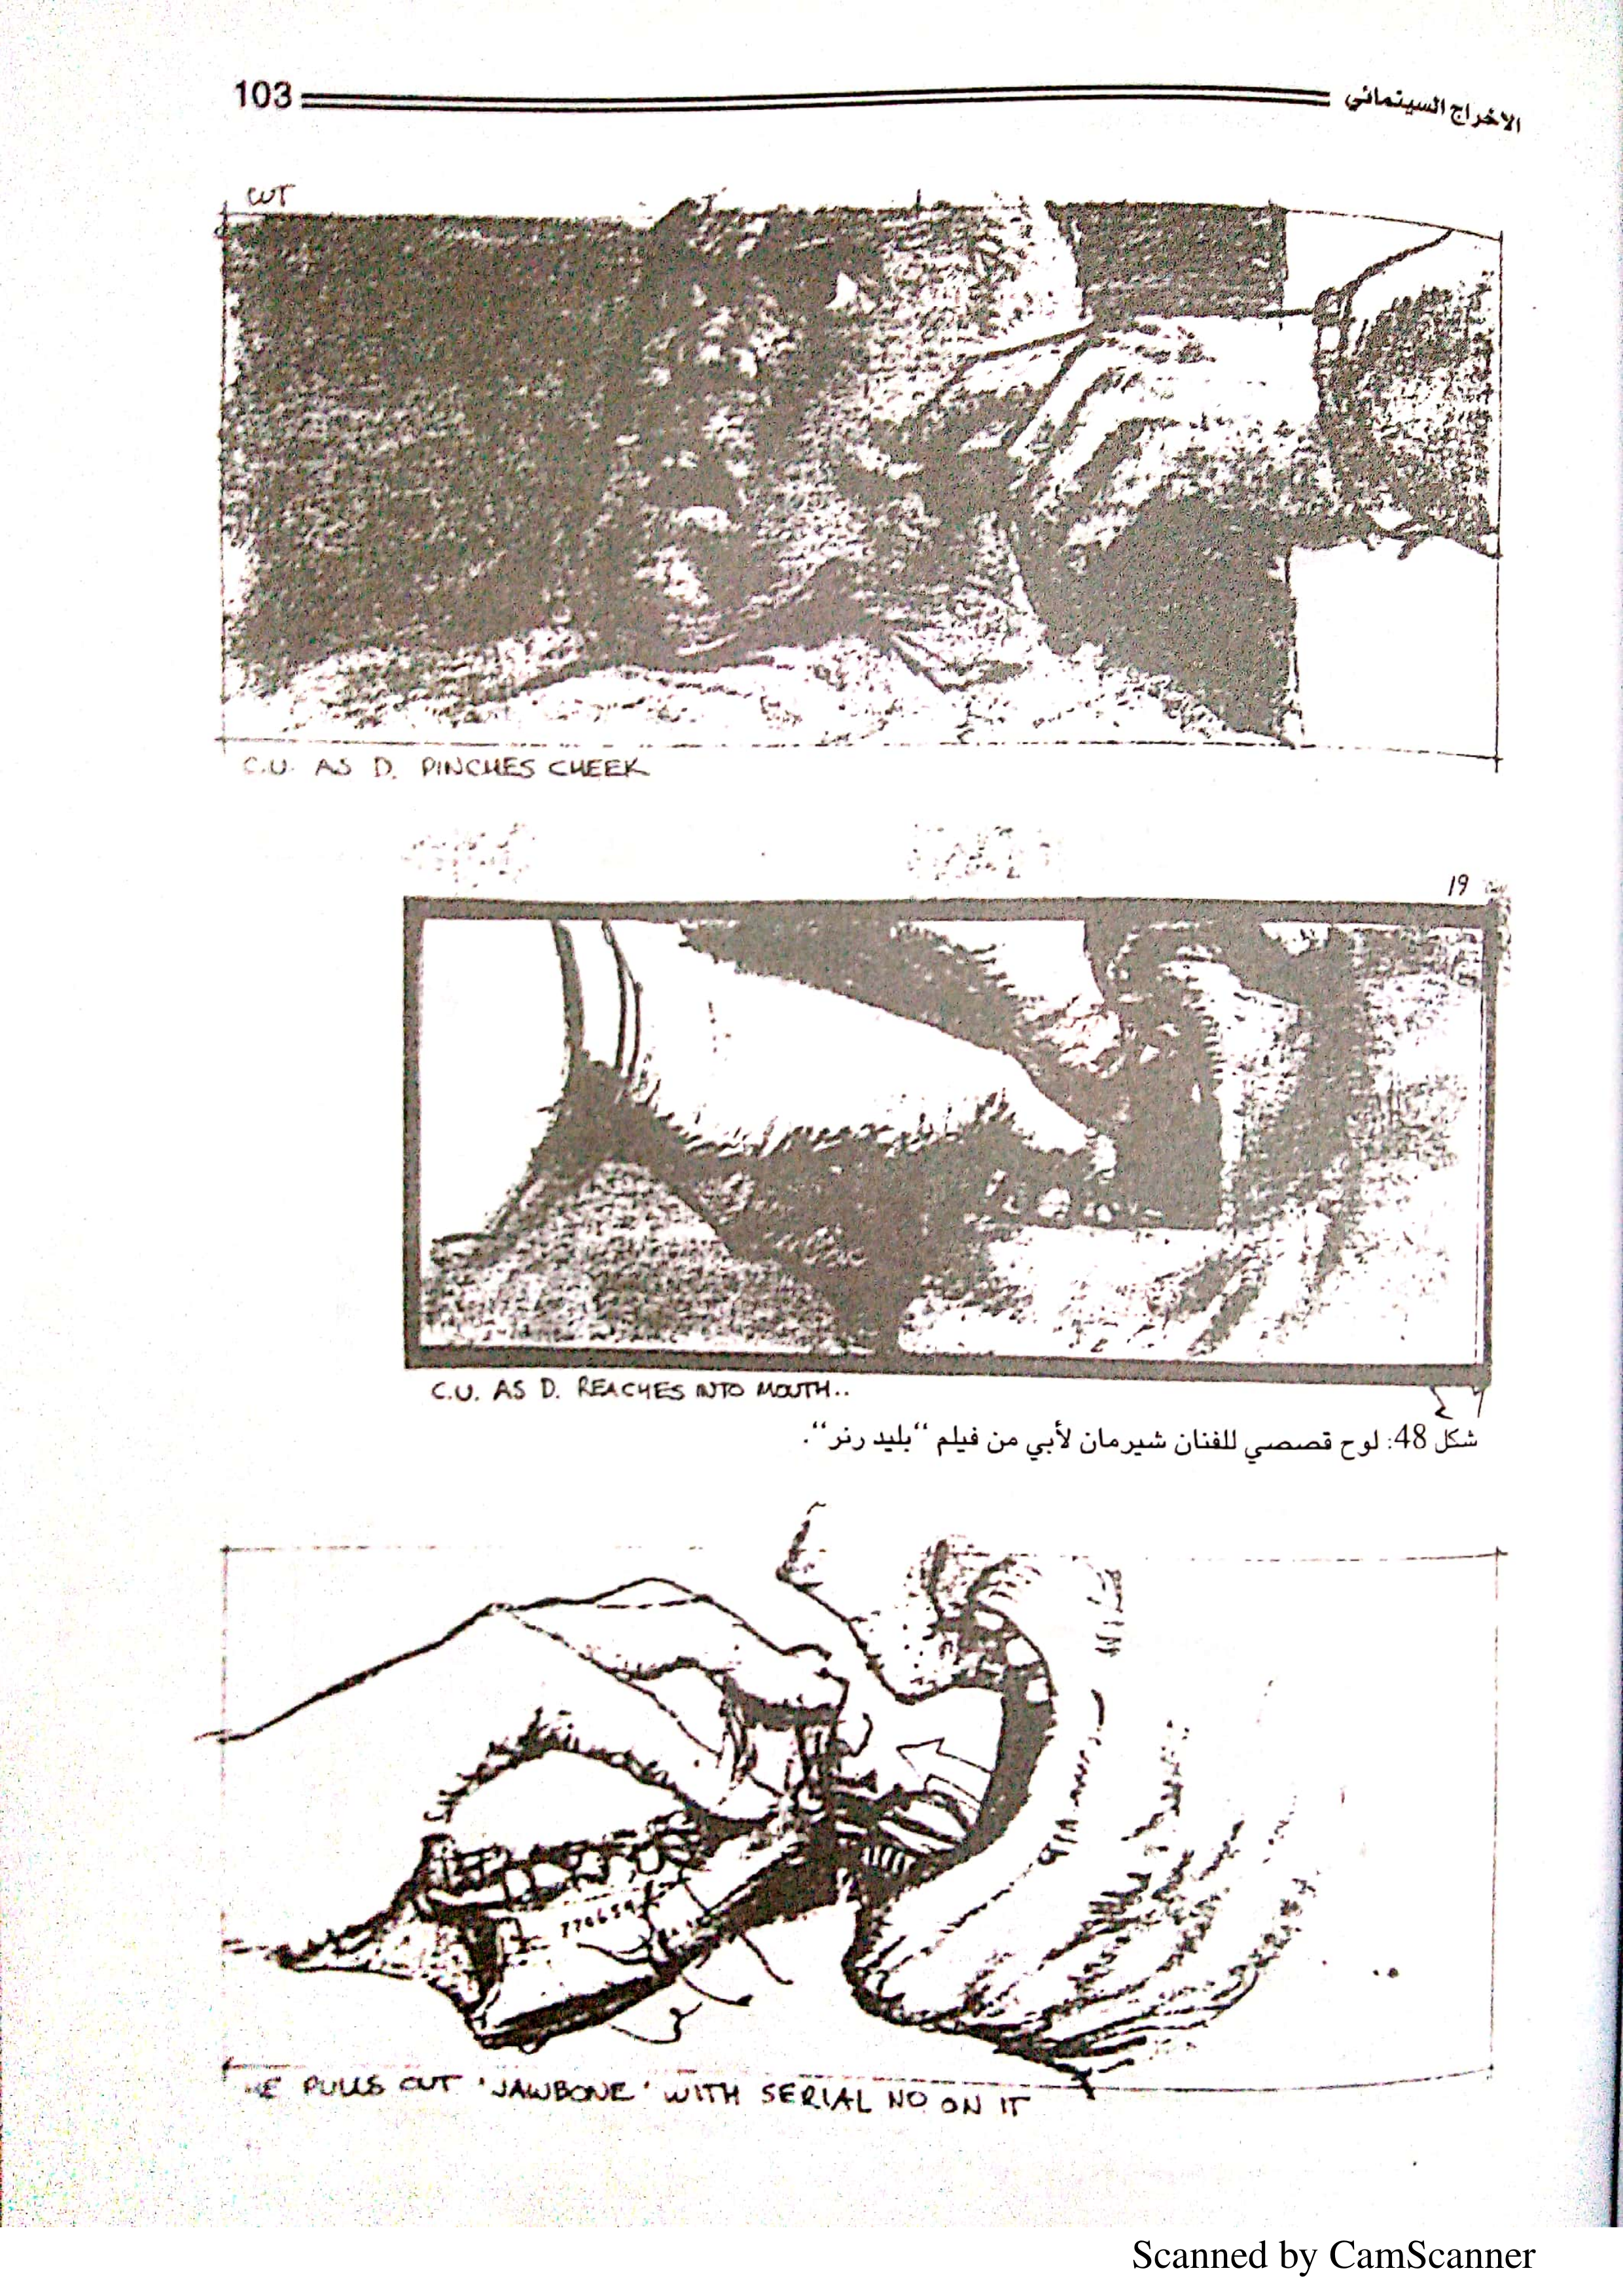 103
الاخراج السينمائي
CUT
C.U. AS D. PINCHES CHEEK
19
C.U. AS D. REACHES INTO MOUTH..
شكل 48: لوح قصصي للفنان شيرمان لأبي من فيلم “بليد رنر“.
PULLS OUT 'JAWBONE' WITH SERIAL NO ON IT
Scanned by CamScanner